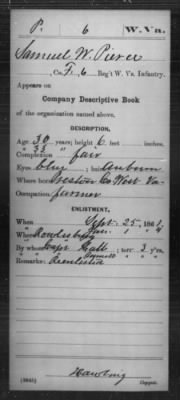 P. 6 W. Va.
Samuel W. Pierce
Co. F, 6 Reg't W. Va. Infantry.
Appears on
Company Descriptive Book
of the organization named above.
DESCRIPTION.
Age 30 years; height 6 feet inches.
" 33
Complexion fair
Eyes blue; hair auburn
Where born Preston Co West Va
Occupation farmer
ENLISTMENT.
When Sept. 25, 1861.
Where Rowlesburg
By whom Capt Hall; term 3 y'rs.
Remarks: Reenlisted
Copyist.